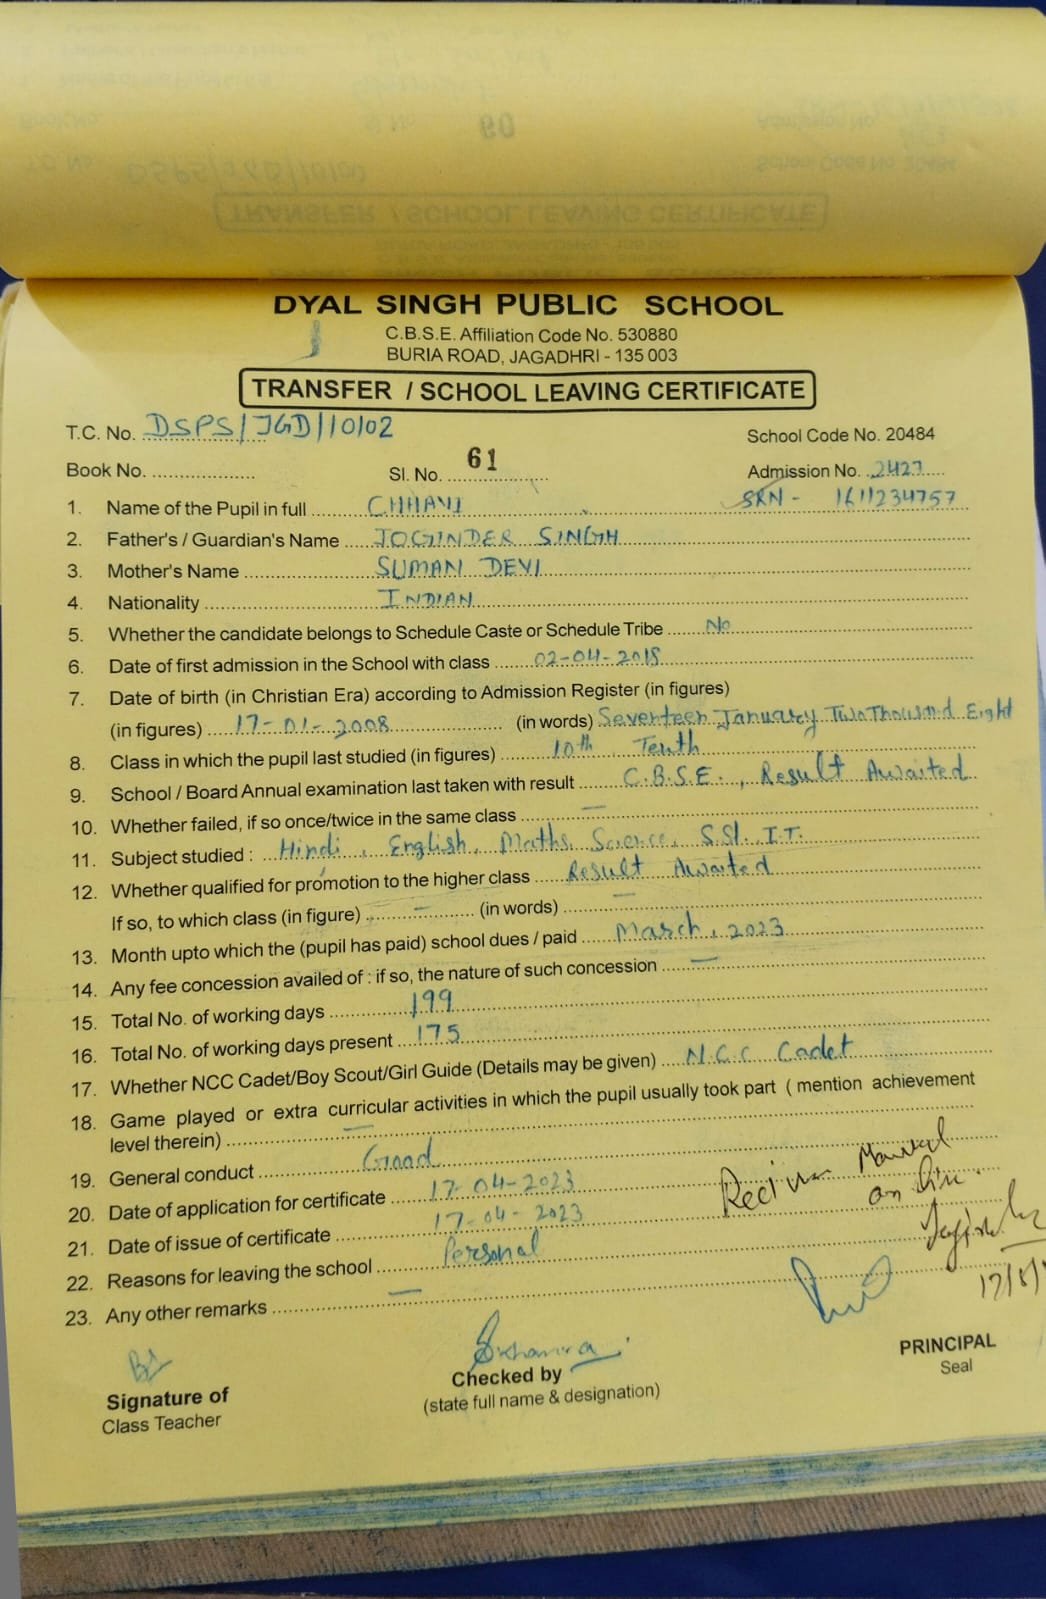 DYAL SINGH PUBLIC SCHOOL
C.B.S.E. Affiliation Code No. 530880
BURIA ROAD, JAGADHRI - 135 003
TRANSFER / SCHOOL LEAVING CERTIFICATE
T.C. No. DSPS/JGD/10/02 School Code No. 20484
Book No. .................... Sl. No. 61 Admission No. 2427
1. Name of the Pupil in full CHHAVI SRN - 1611234757
2. Father's / Guardian's Name JOGINDER SINGH
3. Mother's Name SUMAN DEVI
4. Nationality INDIAN
5. Whether the candidate belongs to Schedule Caste or Schedule Tribe No
6. Date of first admission in the School with class 02-04-2018
7. Date of birth (in Christian Era) according to Admission Register (in figures)
(in figures) 17-01-2008 (in words) Seventeen January Two Thousand Eight
8. Class in which the pupil last studied (in figures) 10th Tenth
9. School / Board Annual examination last taken with result C.B.S.E., Result Awaited
10. Whether failed, if so once/twice in the same class —
11. Subject studied : Hindi, English, Maths, Science, S.St. I.T.
12. Whether qualified for promotion to the higher class Result Awaited
If so, to which class (in figure) — (in words) —
13. Month upto which the (pupil has paid) school dues / paid March, 2023
14. Any fee concession availed of : if so, the nature of such concession —
15. Total No. of working days 199
16. Total No. of working days present 175
17. Whether NCC Cadet/Boy Scout/Girl Guide (Details may be given) N.C.C Cadet
18. Game played or extra curricular activities in which the pupil usually took part ( mention achievement
level therein) —
19. General conduct Good
20. Date of application for certificate 17-04-2023
21. Date of issue of certificate 17-04-2023
22. Reasons for leaving the school Personal
23. Any other remarks —
Signature of
Class Teacher
Checked by
(state full name & designation)
PRINCIPAL
Seal